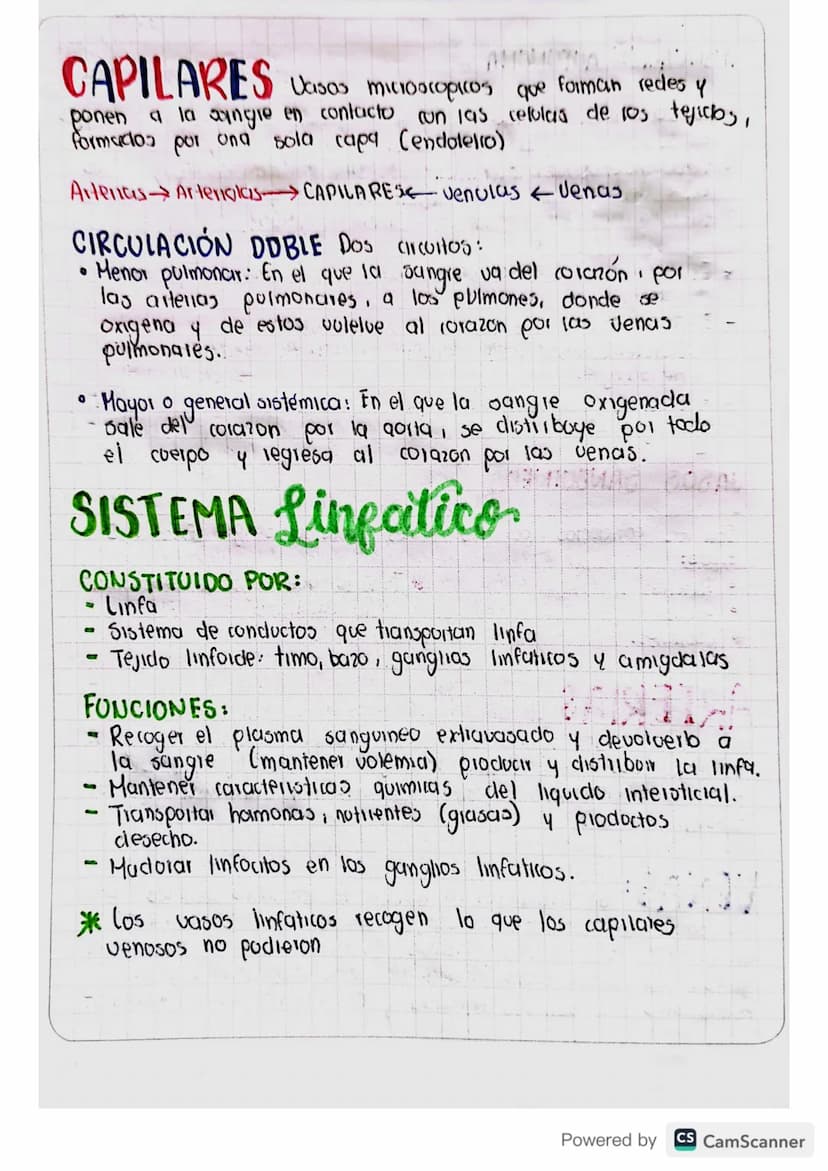 CAPILARES Vasos microscopicos que forman redes y
ponen a la sangre en contacto con las celulas de los tejidos,
formados por una sola capa (endotelio)
Arterias → Arteriolas → CAPILARES ← venulas ← Venas
CIRCULACIÓN DOBLE Dos circuitos:
• Menor pulmonar: En el que la sangre va del corazón, por
las arterias pulmonares, a los pulmones, donde se
oxigena y de estos vuelve al corazon por las venas
pulmonales.
• Mayor o general sistémica: En el que la sangre oxigenada
sale del corazon por la aorta, se distribuye por todo
el cuerpo y regresa al corazon por las venas.
SISTEMA Linfático
CONSTITUIDO POR:
- Linfa
- Sistema de conductos que transportan linfa
- Tejido linfoide: timo, bazo, ganglios linfaticos y amigdalas
FUNCIONES:
- Recoger el plasma sanguineo extravasado y devolverlo a
la sangre (mantener volemia) producir y distribuir la linfa.
- Mantener caracteristicas quimicas del liquido intersticial.
- Transportar hormonas, nutrientes (grasas) y productos
desecho.
- Madurar linfocitos en los ganglios linfaticos.
* Los vasos linfaticos recogen lo que los capilares
venosos no pudieron
Powered by CS CamScanner